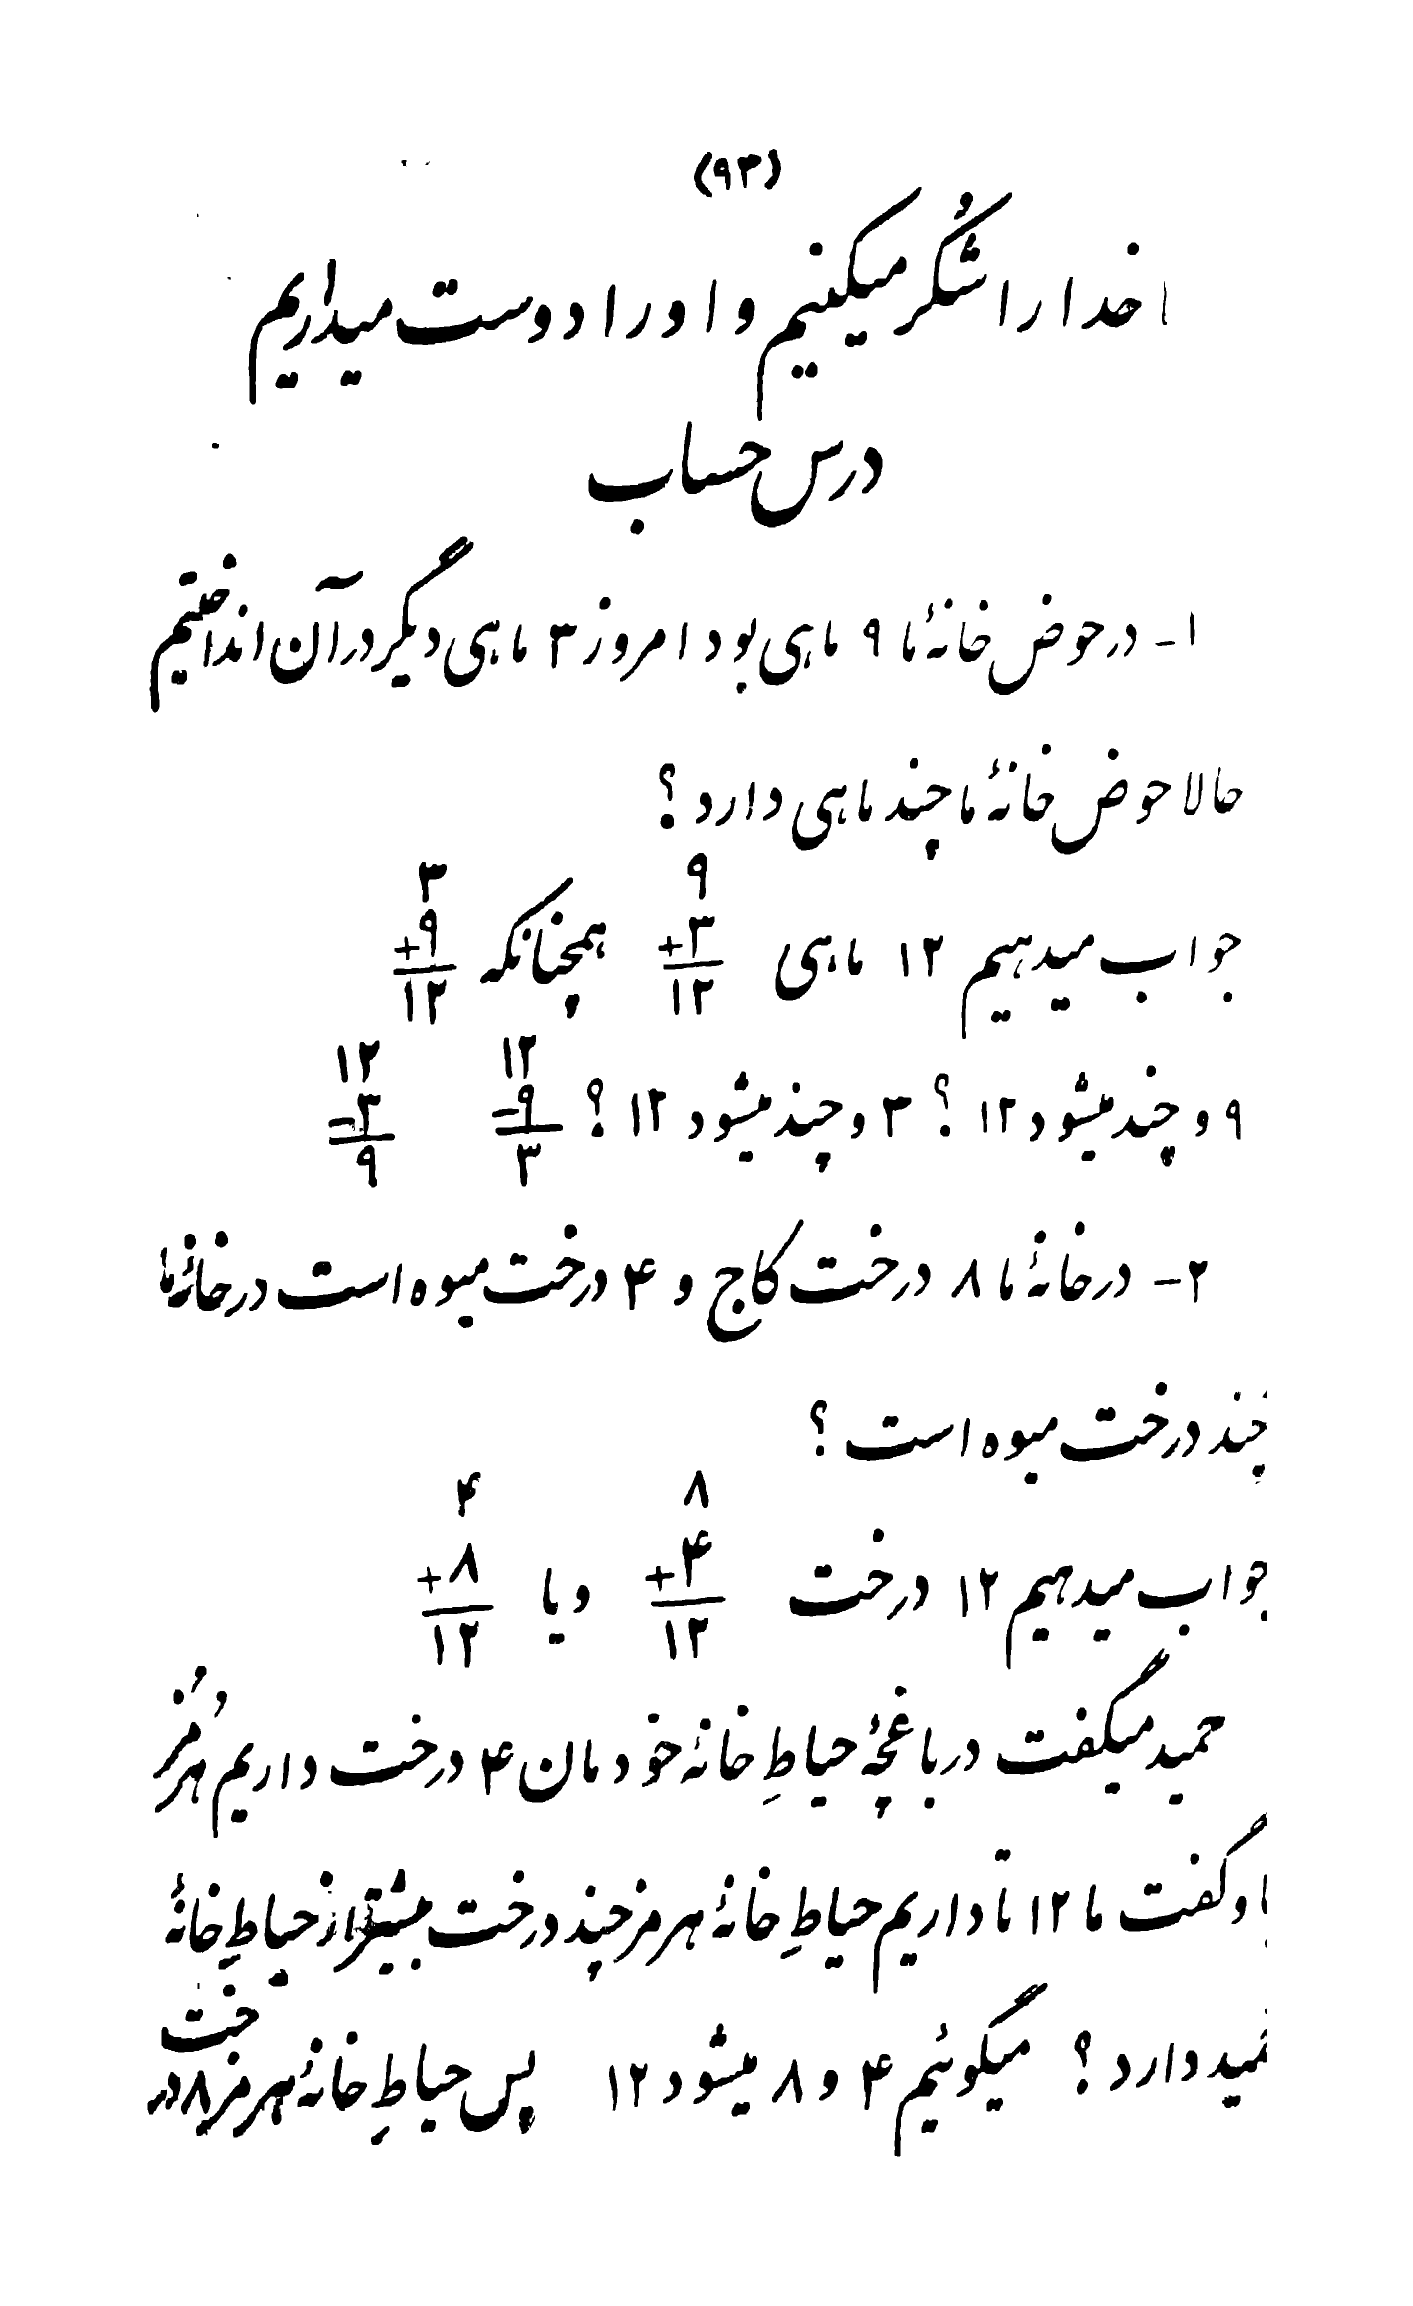 (۹۳)
ما خدا را شُکر میکنیم و او را دوست میداریم
درس حساب
۱- در حوض خانهٔ ما ۹ ماهی بود امروز ۳ ماهی دیگر در آن انداختیم
حالا حوض خانهٔ ما چند ماهی دارد ؟
۹ ۳
جواب میدهیم ۱۲ ماهی +۳ همچنانکه +۹
۱۲ ۱۲
۱۲ ۱۲
۹ و چند میشود ۱۲ ؟ ۳ و چند میشود ۱۲ ؟ -۹ -۳
۳ ۹
۲- در خانهٔ ما ۸ درخت کاج و ۴ درخت میوه است در خانهٔ ما
چند درخت میوه است ؟
۸ ۴
جواب میدهیم ۱۲ درخت +۴ و یا +۸
۱۲ ۱۲
حمید میگفت در باغچهٔ حیاطِ خانهٔ خودمان ۴ درخت داریم هُرمُز
باو گفت ما ۱۲ تا داریم حیاطِ خانهٔ هرمز چند درخت بیشتر از حیاطِ خانهٔ
حمید دارد ؟ میگوئیم ۴ و ۸ میشود ۱۲ پس حیاطِ خانهٔ هرمز ۸ درخت